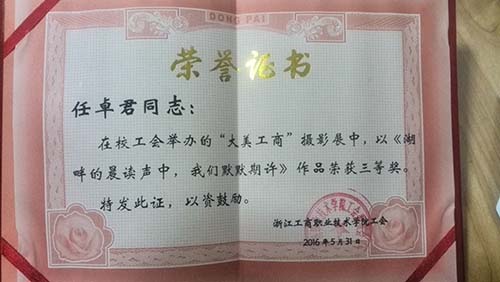 DONG PAI
荣誉证书
任卓君同志：
在校工会举办的“大美工商”摄影展中，以《湖
畔的晨读声中，我们默默期许》作品荣获三等奖。
特发此证，以资鼓励。
浙江工商职业技术学院工会
2016年5月31日